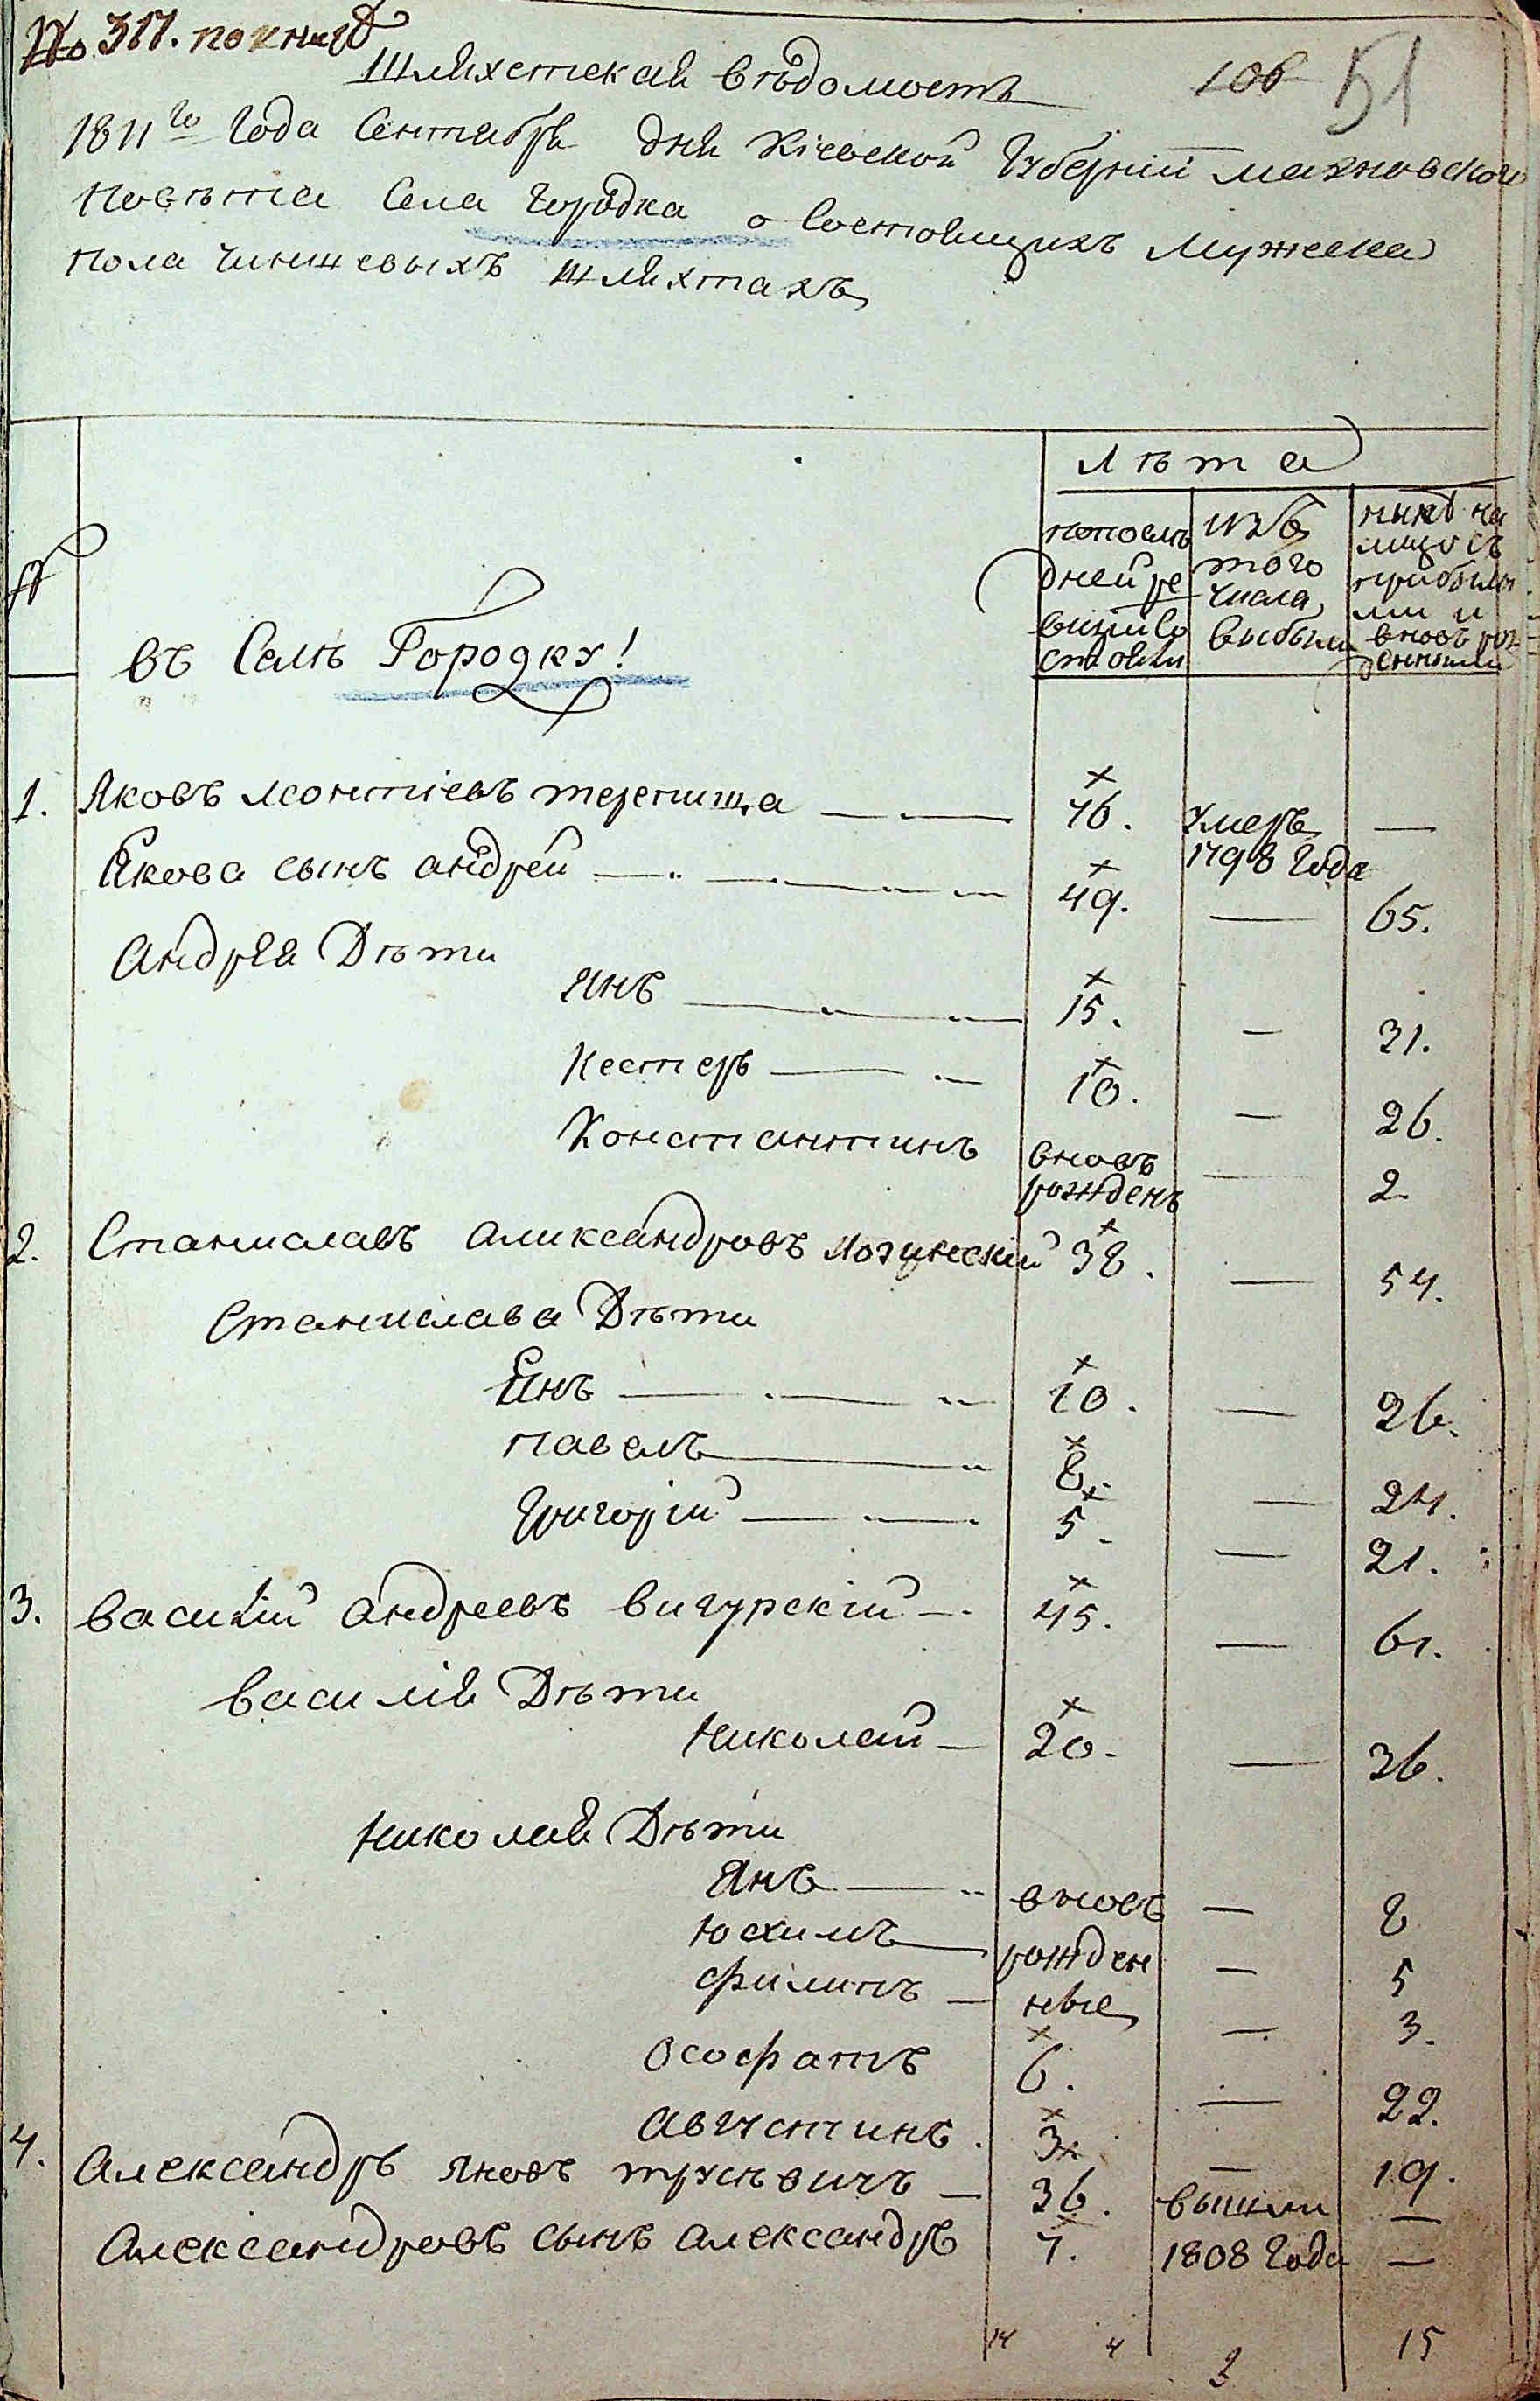 № 317. по книгѣ
Шляхетская вѣдомость 106 51
1811го Года Сентября дня Кіевской Губерніи махновского
Повѣта Села Городка о Состоящихъ Мужеска
пола чиншевыхъ шляхтахъ
Лѣта
№
въ Селѣ Городку!
попослѣ
дней ре
визіи Со
стояли
изъ
того
числа
выбыли
нынѣ на
лицо съ
прибылы
ми и
вновь рож
денными
1. Яковъ Леонтіевъ терепища 76. умеръ —
1798 Года
Якова сынъ андрей 49. — 65.
Андрея Дѣти
Янъ 15. — 31.
Нестеръ 10. — 26.
Константинъ вновь рожденъ — 2
2. Станиславъ Александровъ Лозинскій 38. — 54.
Станислава Дѣти
Янъ 10. — 26.
Павелъ 8. — 24.
Григорій 5. — 21.
3. Василій Андреевъ Вигурскій 45. — 61.
Василія Дѣти
Николай 20. — 36.
Николая Дѣти
Янъ вновь — 8
Юхимъ рожден — 5
Филипъ ные — 3.
Ософатъ 6. — 22.
Августинъ 3. — 19.
4. Александръ Яновъ трусѣвичъ 36. вышли —
Александровъ сынъ Александръ 7. 1808 Года —
14 4 3 15